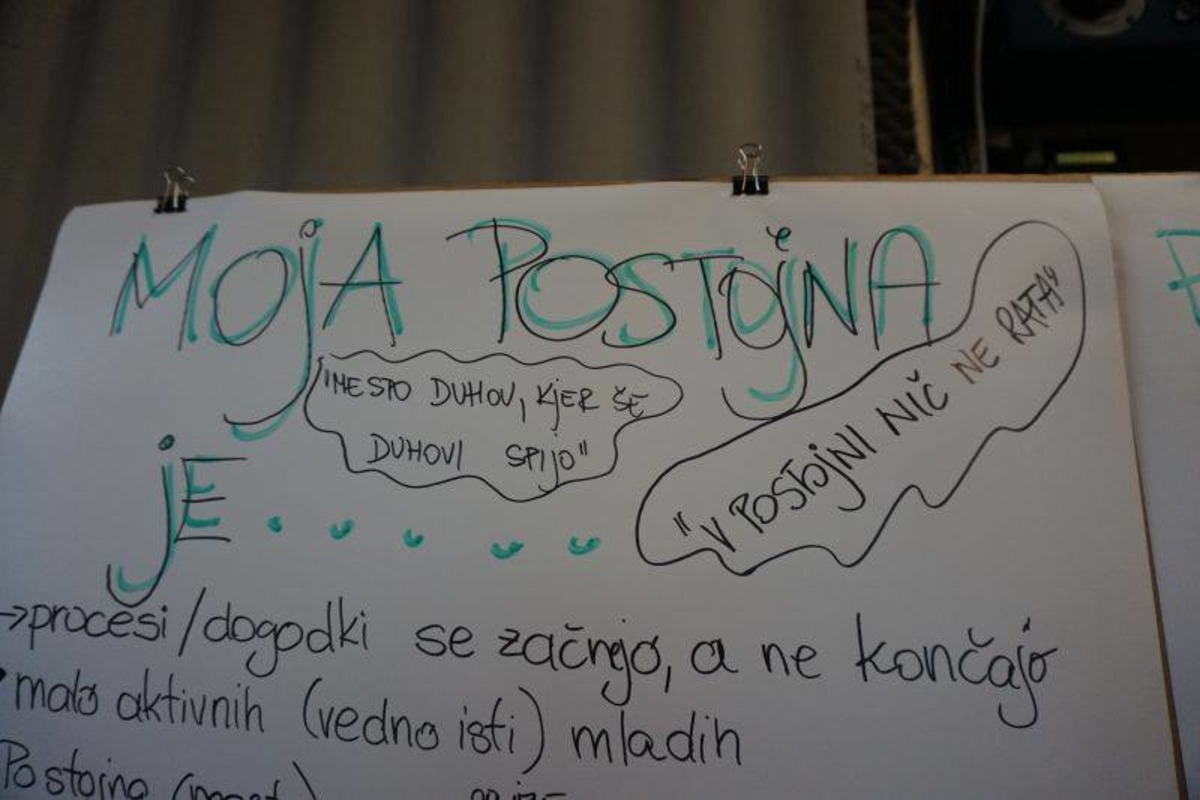 MOJA POSTOJNA
"MESTO DUHOV, KJER ŠE
DUHOVI SPIJO"
"V POSTOJNI NIČ NE RATA"
JE.....
→procesi/dogodki se začnjo, a ne končajo
malo aktivnih (vedno isti) mladih
Postojna